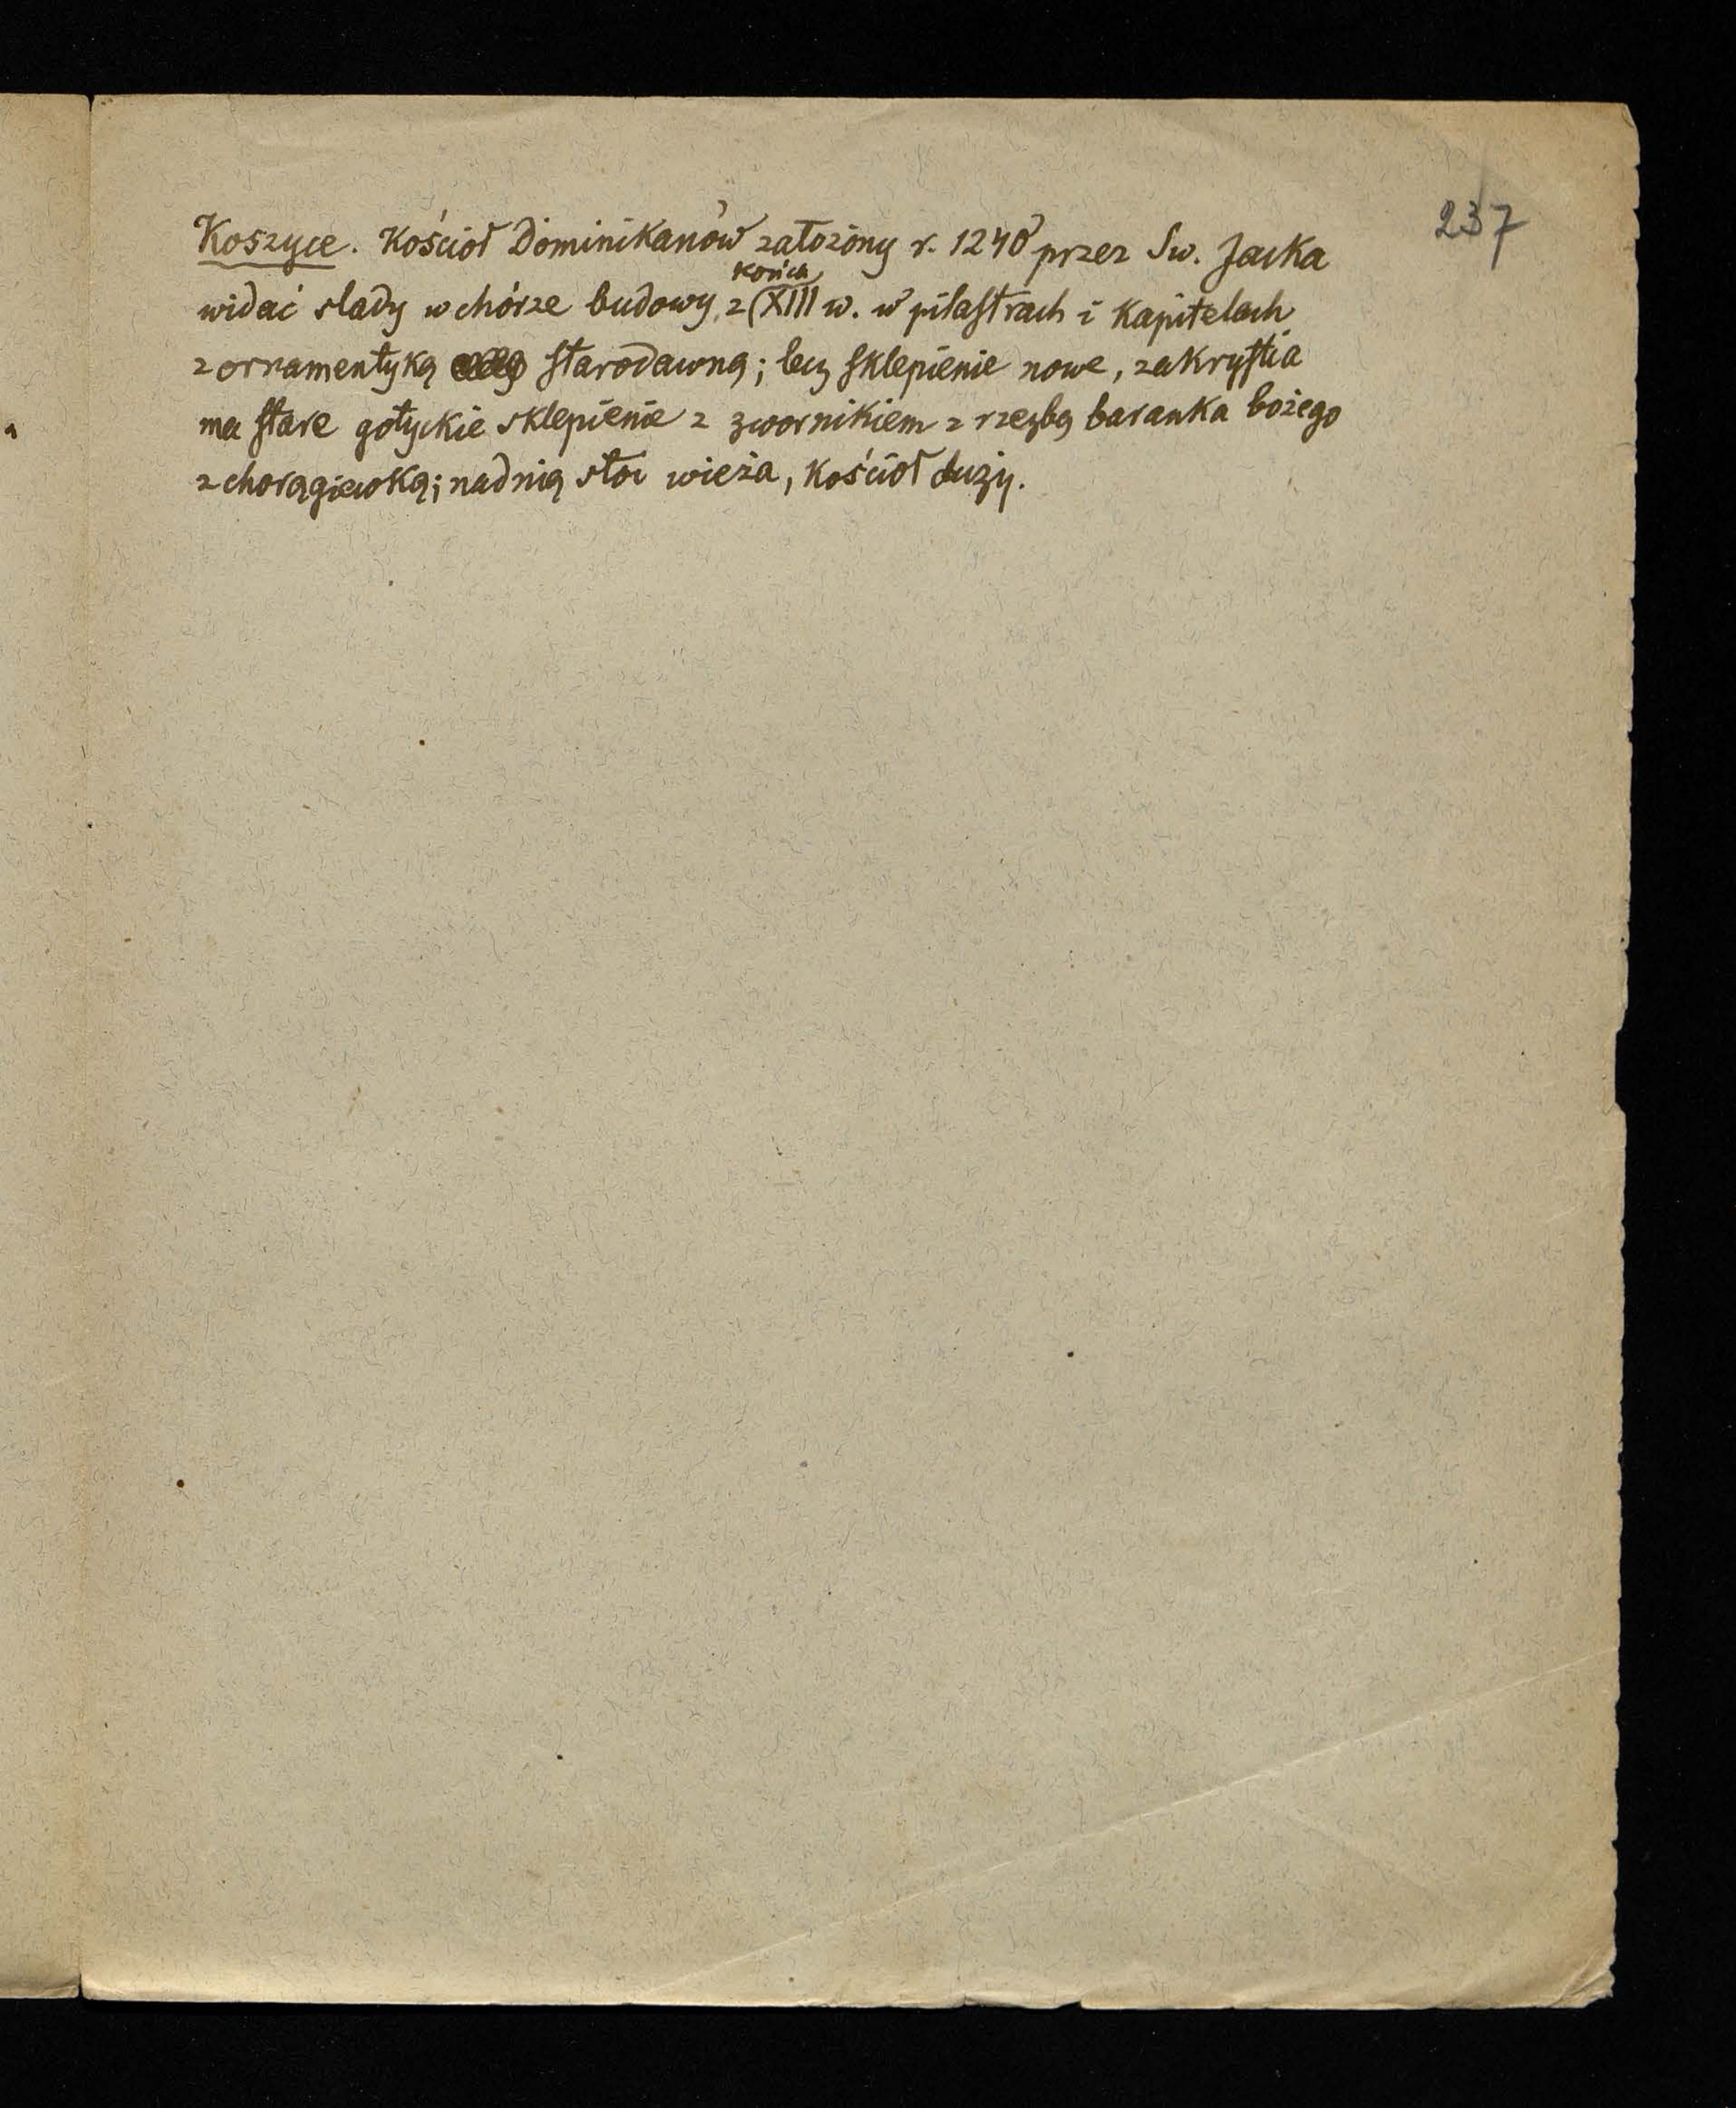 237
Koszyce. Kościoł Dominikanów założony r. 1240 przez Sw. Jacka
końca
widać slady w chórze budowy, z XIII w. w pilastrach i kapitelach
z ornamentyką starodawną; lecz sklepienie nowe, zakrystia
ma stare gotyckie sklepienie z zwornikiem z rzezbą baranka bożego
z chorągiewką; nad nią stoi wieża, kościoł duży.